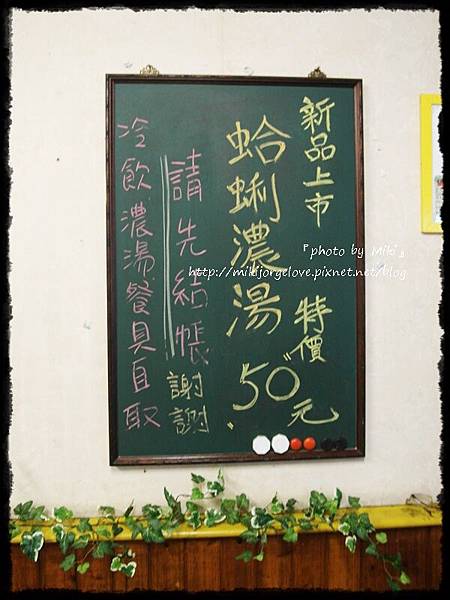 新品上市
蛤蜊濃湯
特價
50元
請先結帳
謝謝
冷飲濃湯餐具自取
『photo by Miki』
http://mikijorgelove.pixnet.net/blog